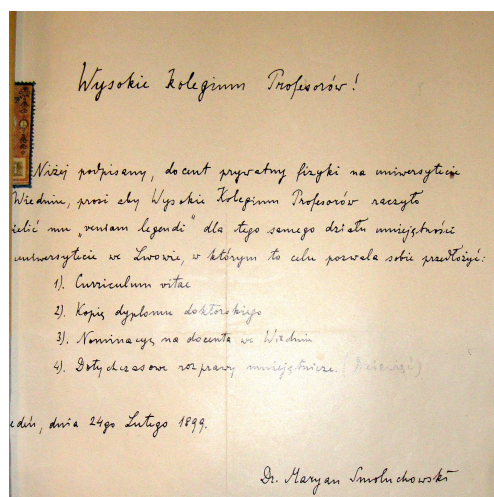 Wysokie Kolegium Profesorów!
Niżej podpisany, docent prywatny fizyki na uniwersytecie
Wiedniu, prosi aby Wysokie Kolegium Profesorów raczyło
ielić mu „veniam legendi" dla tego samego działu umiejętności
uniwersytecie we Lwowie, w którym to celu pozwala sobie przedłożyć:
1). Curriculum vitae
2). Kopię dyplomu doktorskiego
3). Nominacyę na docenta we Wiedniu
4). Dotychczasowe rozprawy umiejętnicze. (Dziewięć)
edeń, dnia 24go Lutego 1899.
Dr. Maryan Smoluchowski